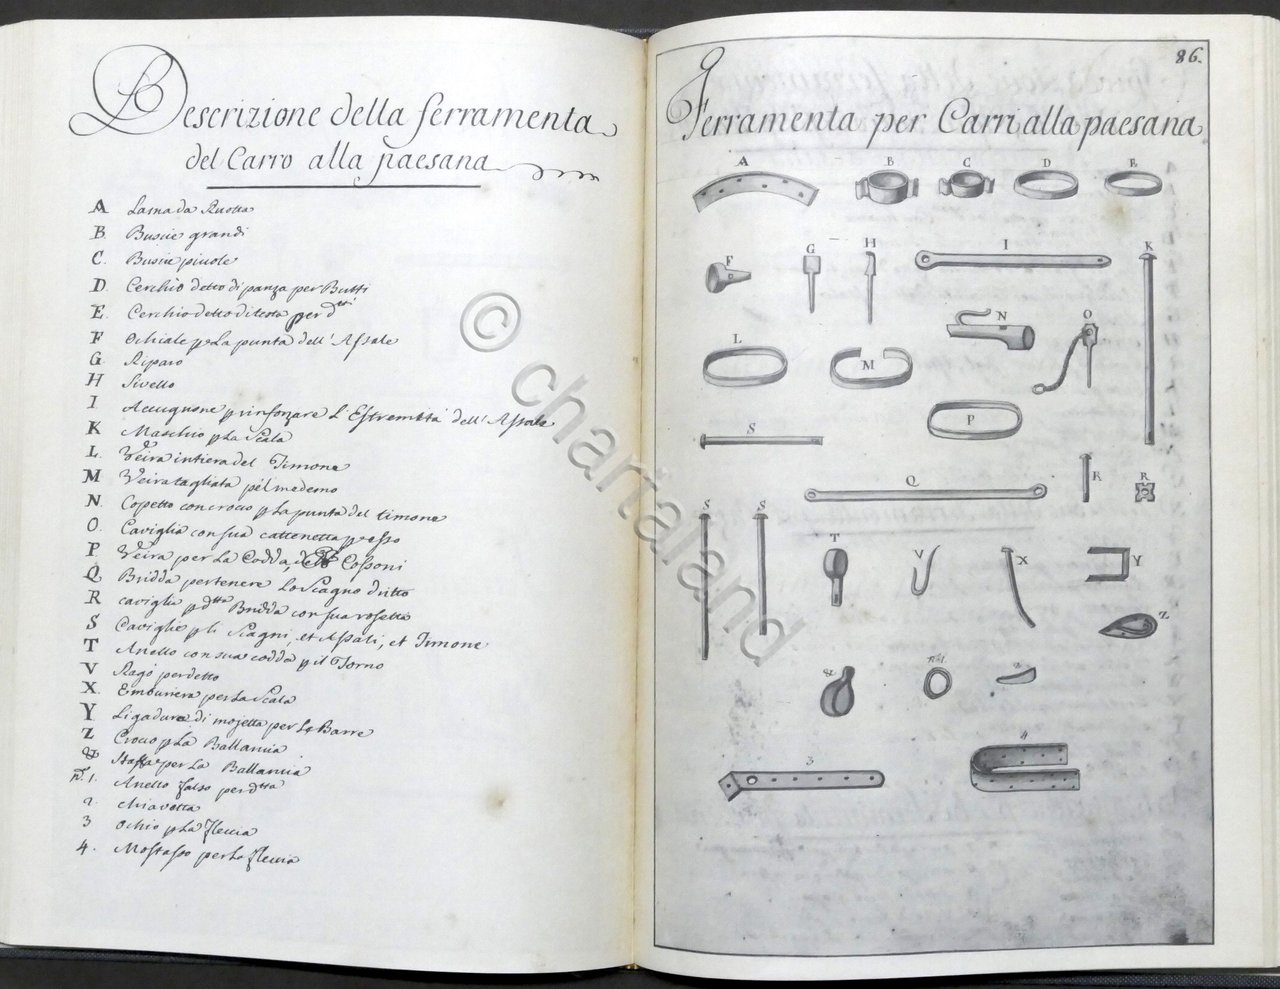 Descrizione della ferramenta
del Carro alla paesana
A Lama da Ruotta
B. Buscie grandi
C. Buscie picole
D. Cerchio detto di panza per Butti
E. Cerchio detto di testa per dtti
F Ochiale p La punta dell'Assale
G Riparo
H Sivetto
I Acuignone p rinforzare L'Estremità dell'Assale
K Maschio p La Scala
L. Veira intiera del Timone
M Veira tagliata pel medemo
N Copetto con croco p La punta del timone
O. Caviglia con sua cattenetta p esso
P Veira per La Codda, Cossoni
Q Bridda per tenere Lo Scagno dritto
R caviglia p dtta Bridda con sua rosetta
S Caviglie p li Scagni, et Assali, et Timone
T Anello con sua codda p il Torno
V Ragò per detto
X. Emburiera per La Scala
Y Ligadura di mojetta per Le Barre
Z Croco p La Ballancia
& Staffa per La Ballancia
n.° 1. Anello falso per dtta
2. Chiavetta
3 Ochio p La Fleccia
4. Mostasso per La Fleccia
86.
Ferramenta per Carri alla paesana
A B C D E
F G H I K
L M N O
P
S
Q K R
S S
T V X Y
Z
& n.° 1. 2
3 4
© chartaland